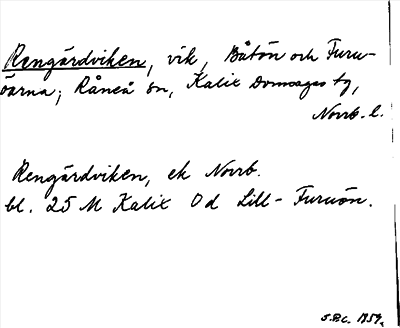 Rengårdviken, vik, Båtön och Furu-
öarna; Råneå sn, Kalix Domsagas tg,
Norrb. l.
Rengårdviken, ek Norrb.
bl. 25 M Kalix Od Lill-Furuön.
1954.